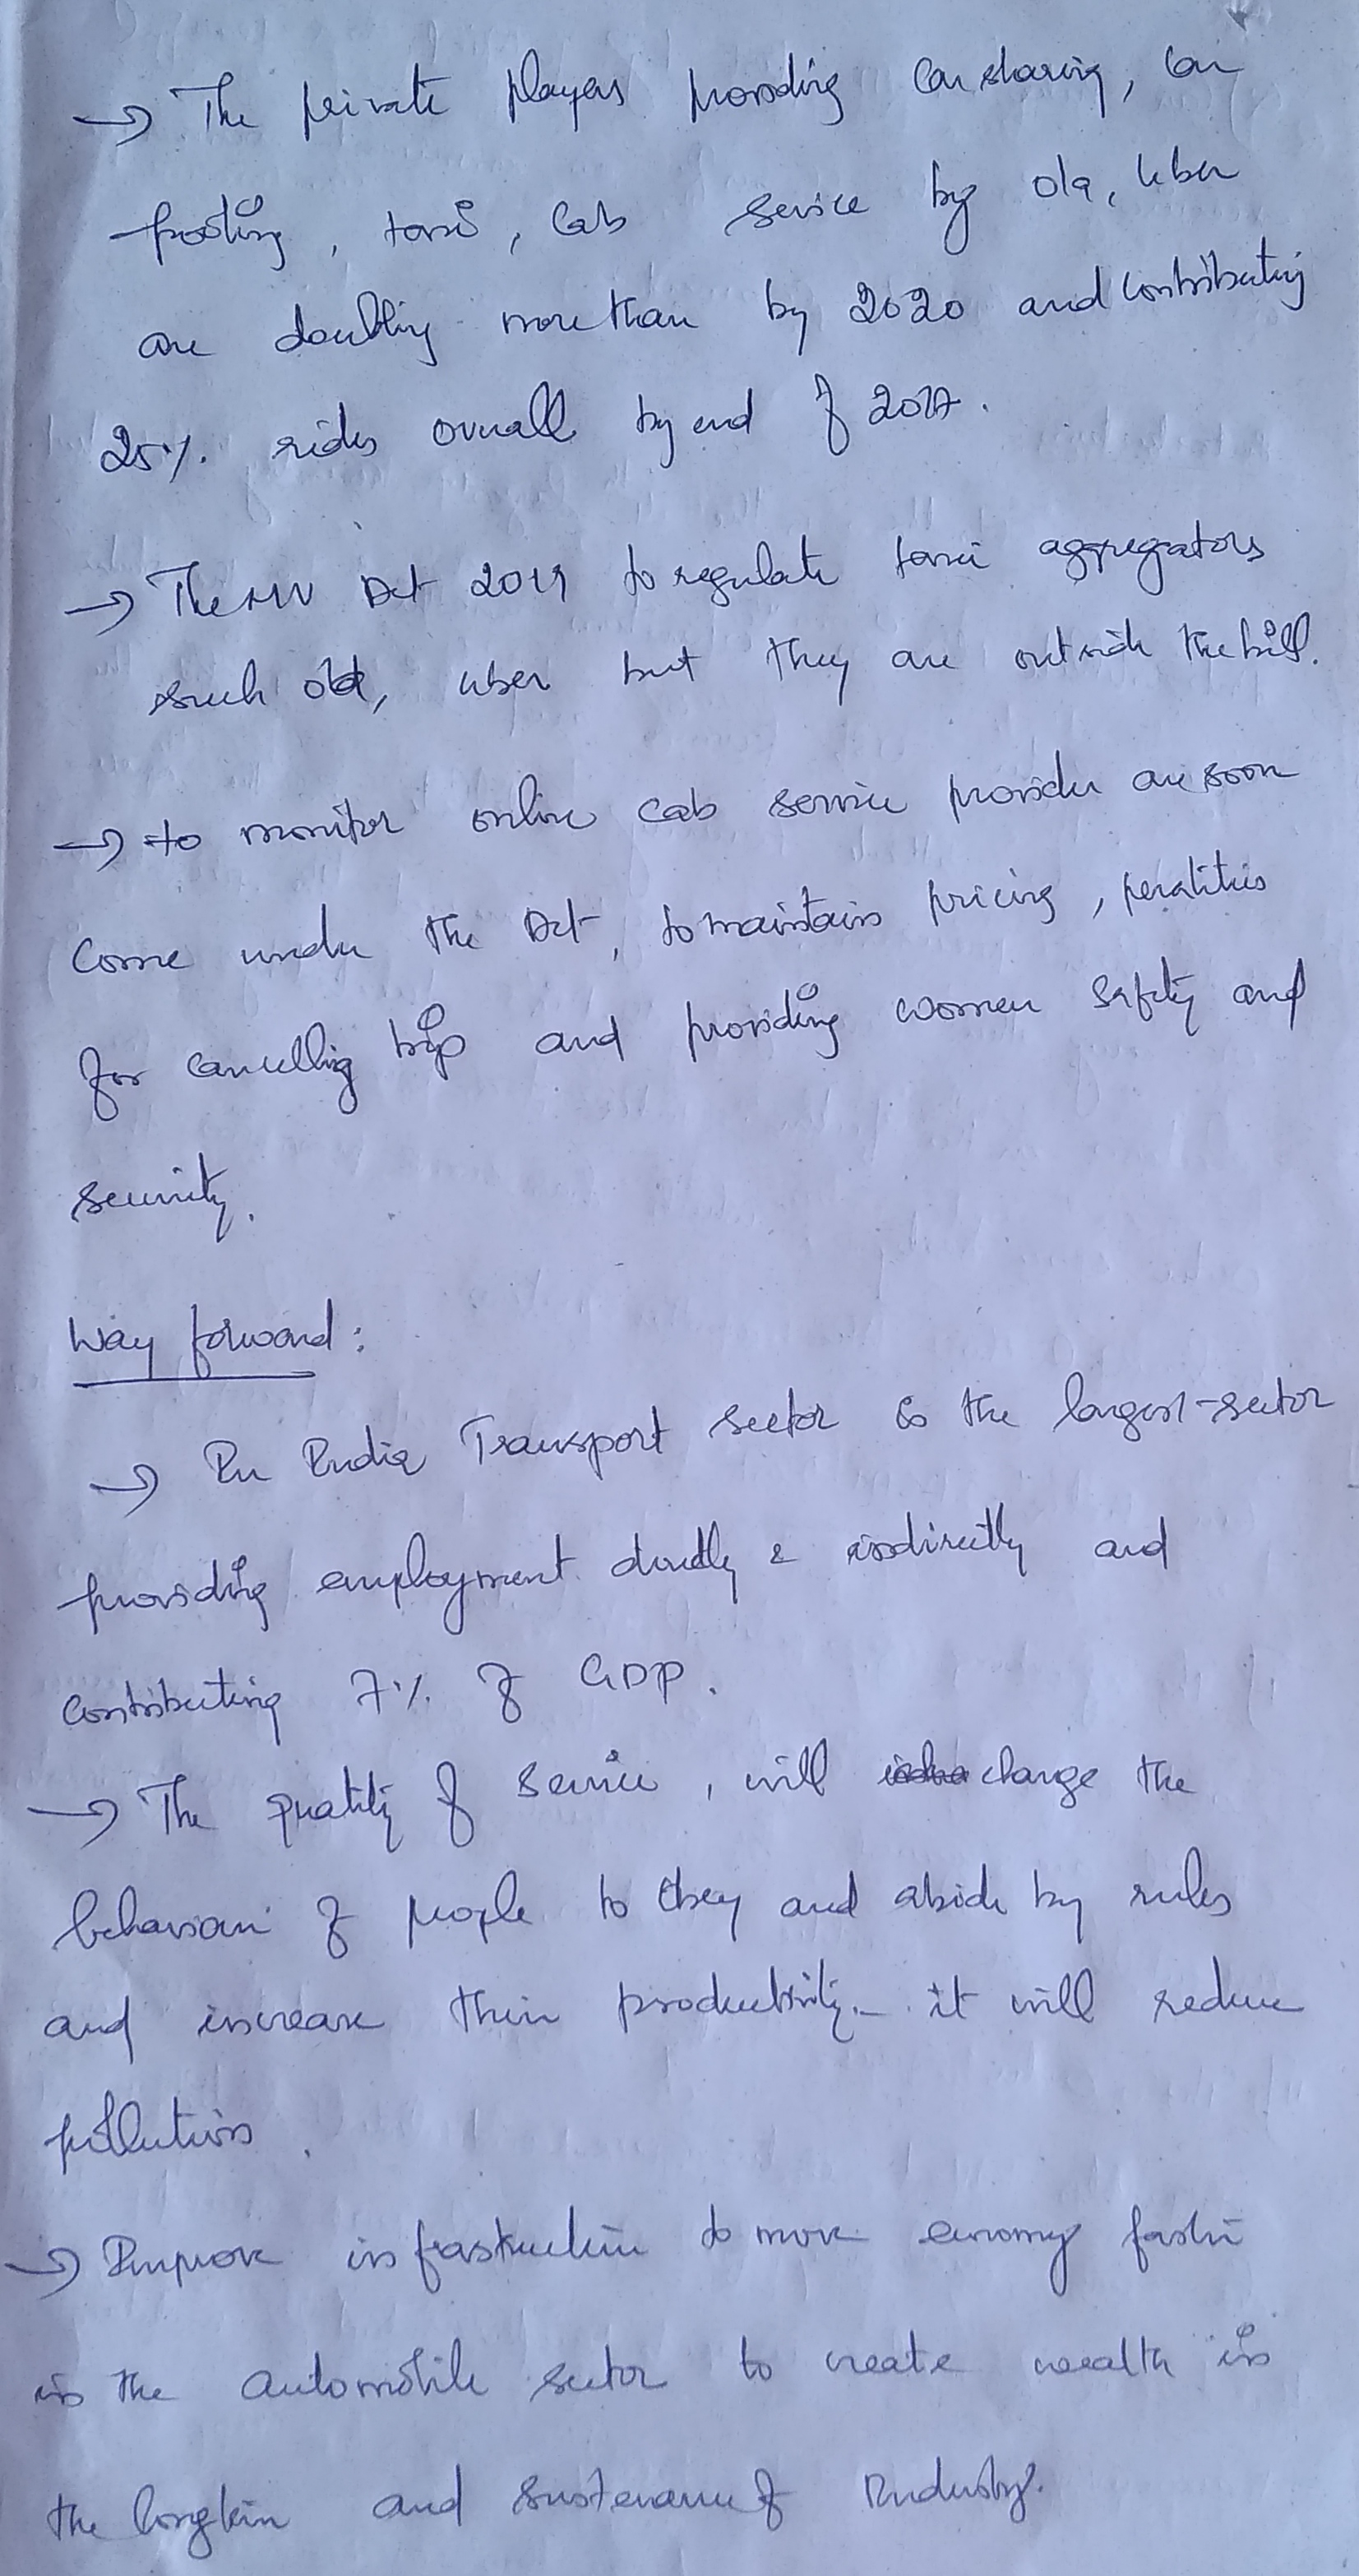 → The private players providing Car sharing, Car
pooling, taxi, Cab service by Ola, Uber
are doubling more than by 2020 and contributing
25% rides overall by end of 2017.
→ The MV Act 2019 to regulate taxi aggregators
such ola, uber but they are outside the bill.
→ to monitor online cab service provider are soon
Come under the Act, to maintain pricing, penalities
for cancelling trip and providing women safety and
security.
Way forward:
→ In India Transport sector is the largest sector
providing employment directly & indirectly and
Contributing 7% of GDP.
→ The quality of service, will change the
behaviour of people to obey and abide by rules
and increase their productivity. it will reduce
pollution.
→ Improve infrastructure to move economy faster
in the automobile sector to create wealth in
the longterm and sustenance of Industry.